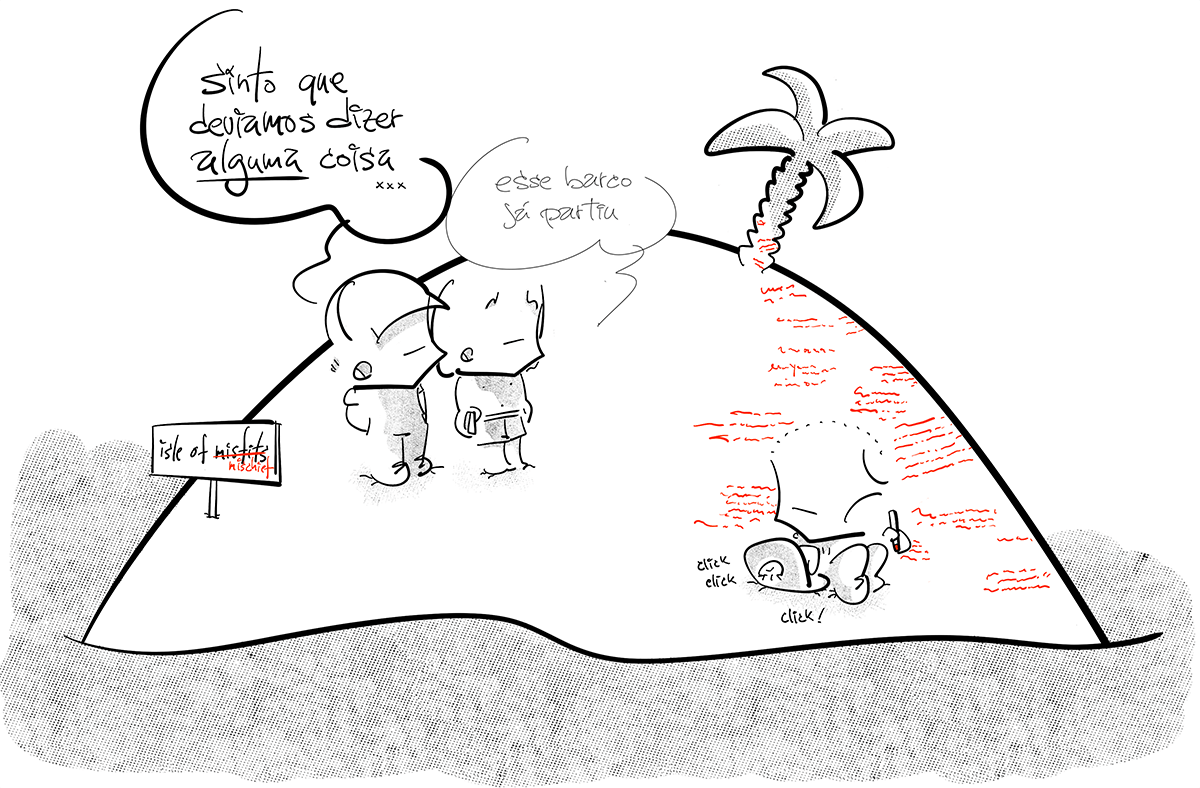 sinto que
devíamos dizer
alguma coisa
xxx
esse barco
já partiu
isle of misfits
mischief
click
click
click!